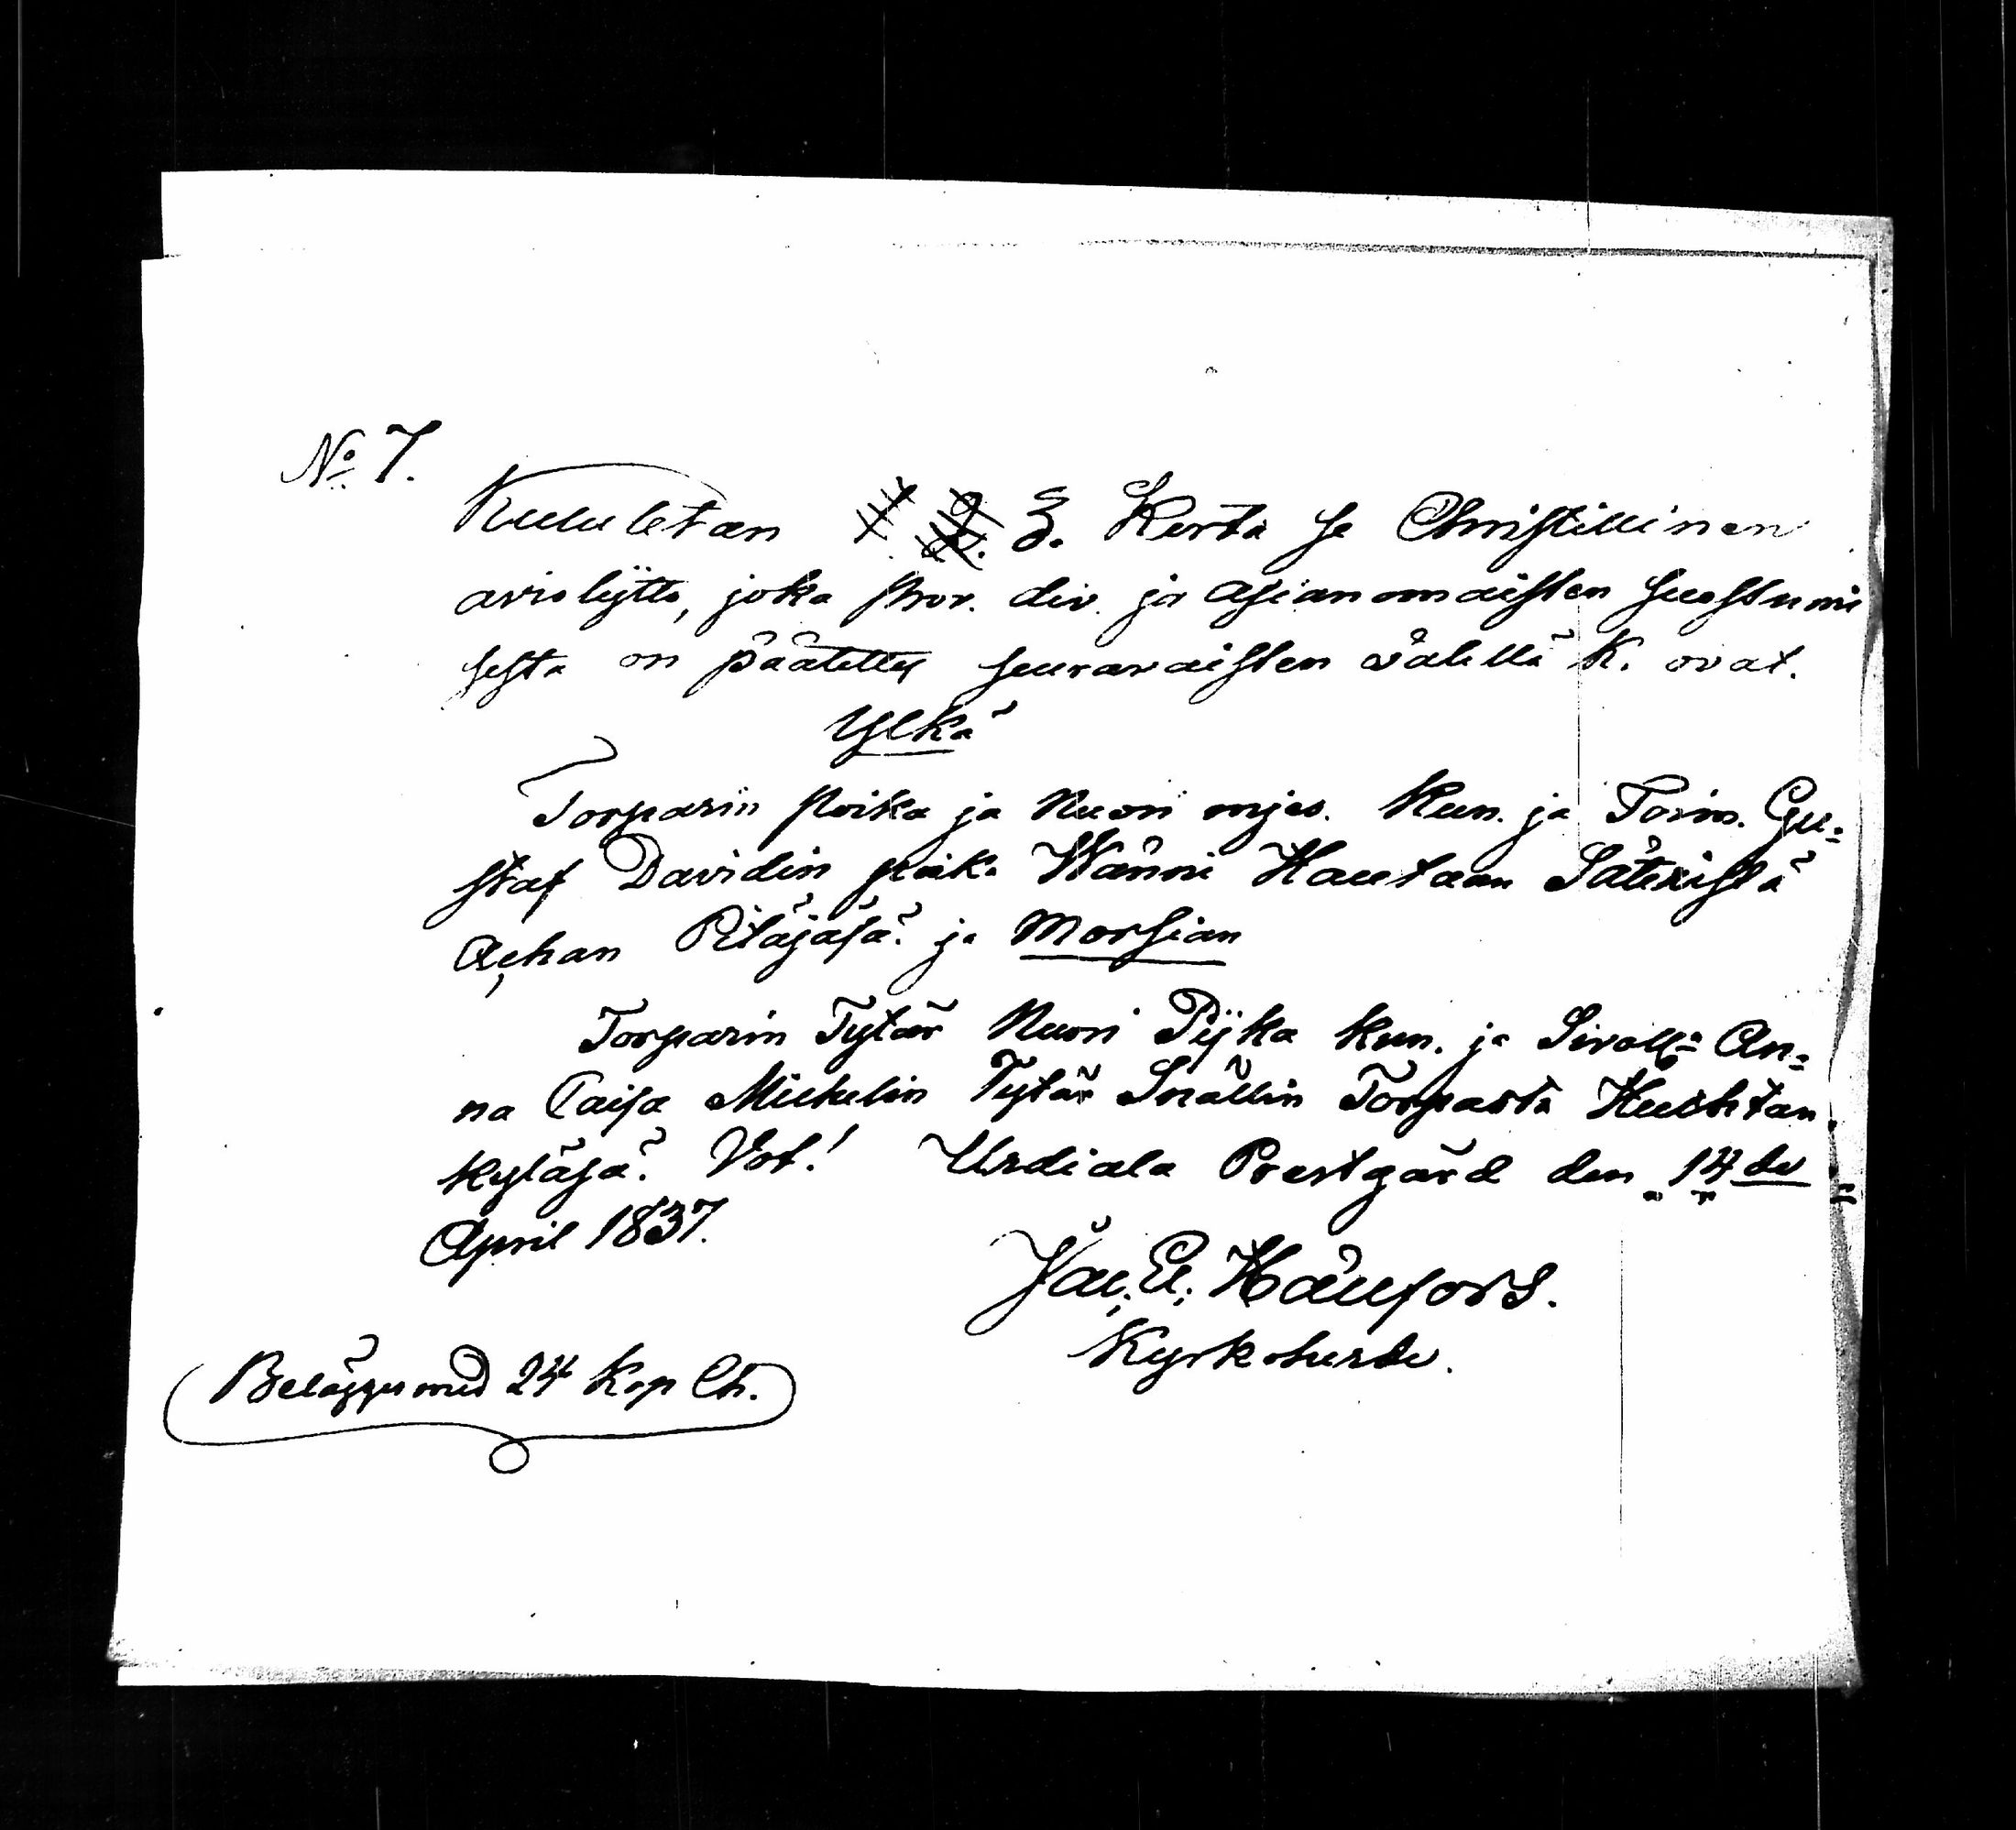 No 7.
Kuuletan 3. Kerta se Christillinen
aviokytto, joka prov. div. ja asianomaisten suostumi
sesta on päätetty seuravaisten välillä K. ovat.
Ylkä
Torparin poika ja Nuori mjes. Kun. ja Toim. Gu=
staf Davidin poik. Wänni Hautaan Säteristä
Achan Pitäjäsä. ja Morsian
Torparin Tytär Nuori Pijka kun. ja Sivoll: An=
na Caisa Michelin Tytär Snällin Torpasta Huchtan
kyläsä. Vot! Urdiala Prestgård den 14de
April 1837.
Jac. El. Hällfors.
Kyrkoherde.
Belägges med 24 Kop Ch.